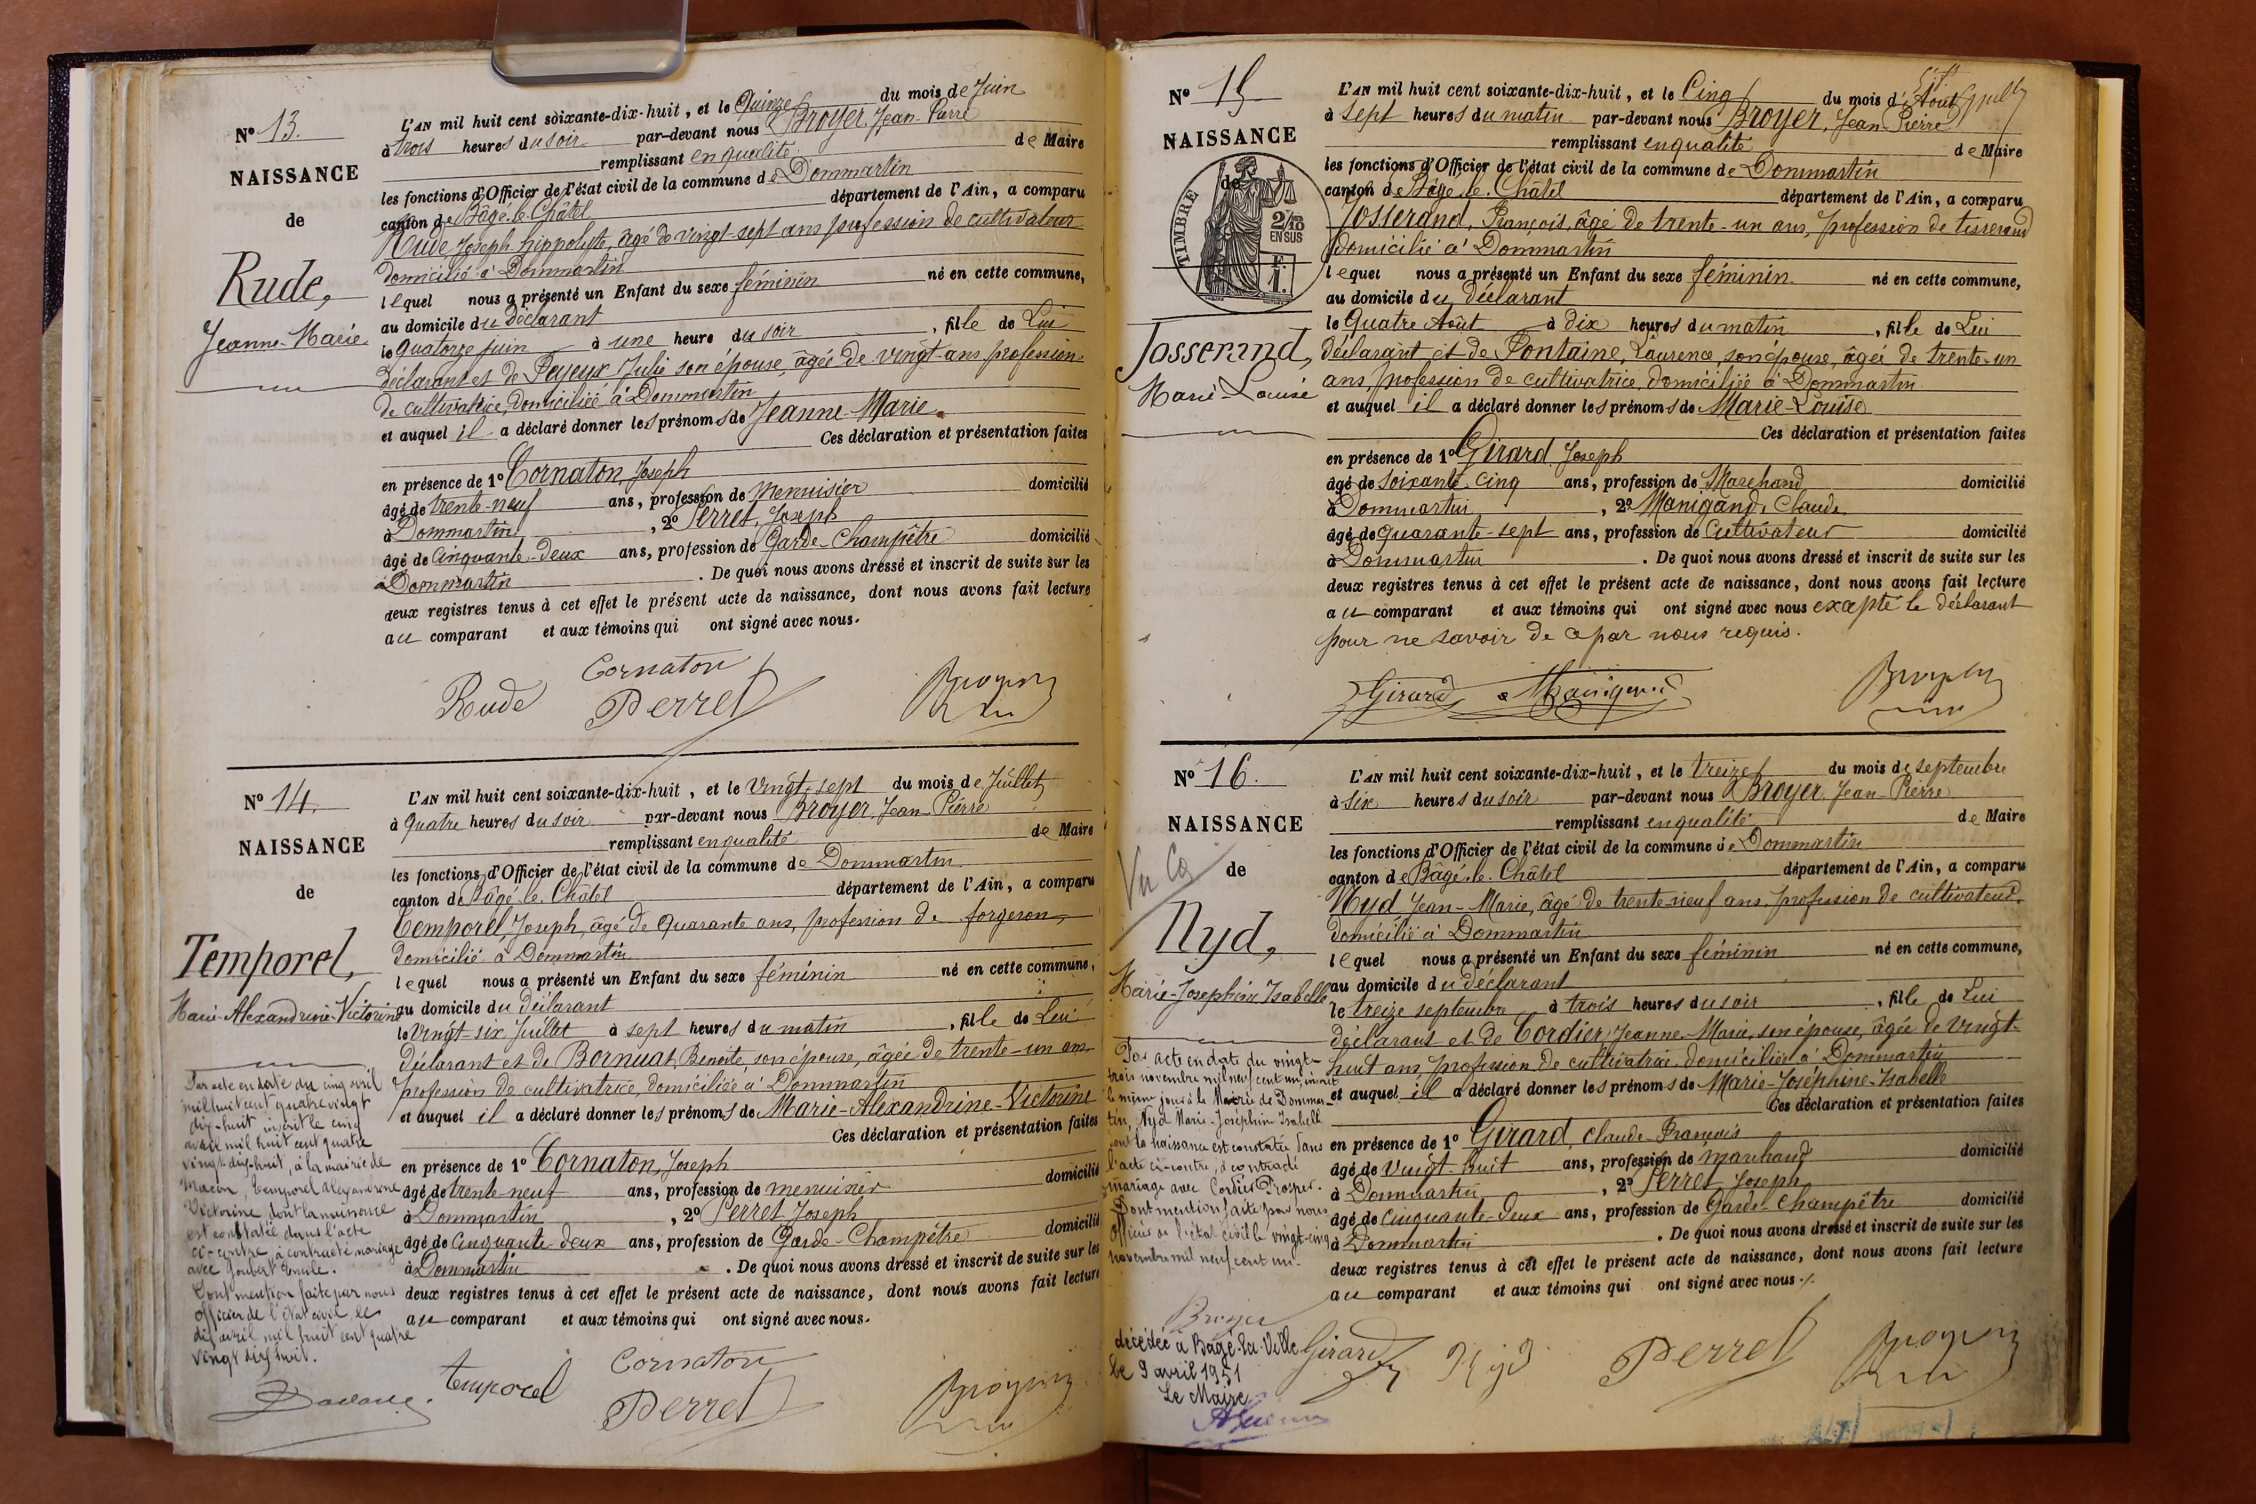 N° 13.
NAISSANCE
de
Rude,
Jeanne-Marie
L'AN mil huit cent soixante-dix-huit, et le Quinze du mois de Juin
à trois heures du soir par-devant nous Broyer, Jean-Pierre
remplissant en qualité de Maire
les fonctions d'Officier de l'état civil de la commune de Dommartin
canton de Bâgé-le-Châtel département de l'Ain, a comparu
Rude, Joseph hippolyte, âgé de vingt-sept ans profession de cultivateur
domicilié à Dommartin
lequel nous a présenté un Enfant du sexe féminin né en cette commune,
au domicile du déclarant
le Quatorze juin à une heure du soir, fille de Lui
déclarant et de Peyeux Julie son épouse, âgée de vingt ans profession
de cultivatrice, domiciliée à Dommartin
et auquel il a déclaré donner les prénoms de Jeanne-Marie.
Ces déclaration et présentation faites
en présence de 1° Cornaton, Joseph
âgé de trente-neuf ans, profession de menuisier domicilié
à Dommartin, 2° Perret, Joseph
âgé de cinquante-deux ans, profession de Garde-Champêtre domicilié
à Dommartin. De quoi nous avons dressé et inscrit de suite sur les
deux registres tenus à cet effet le présent acte de naissance, dont nous avons fait lecture
au comparant et aux témoins qui ont signé avec nous.
Rude Cornaton Perret Broyer
N° 14.
NAISSANCE
de
Temporel,
Marie-Alexandrine-Victorine
L'AN mil huit cent soixante-dix-huit, et le vingt-sept du mois de Juillet
à Quatre heures du soir par-devant nous Broyer, Jean-Pierre
remplissant en qualité de Maire
les fonctions d'Officier de l'état civil de la commune de Dommartin
canton de Bâgé-le-Châtel département de l'Ain, a comparu
Temporel, Joseph, âgé de Quarante ans, profession de forgeron,
domicilié à Dommartin
lequel nous a présenté un Enfant du sexe féminin né en cette commune,
au domicile du déclarant
le vingt-six Juillet à sept heures du matin, fille de Lui
déclarant et de Bornuat, Benoite, son épouse, âgée de trente-un ans
profession de cultivatrice, domiciliée à Dommartin
et auquel il a déclaré donner les prénoms de Marie-Alexandrine-Victorine
Ces déclaration et présentation faites
en présence de 1° Cornaton, Joseph
âgé de trente-neuf ans, profession de menuisier domicilié
à Dommartin, 2° Perret Joseph
âgé de cinquante-deux ans, profession de Garde-Champêtre domicilié
à Dommartin. De quoi nous avons dressé et inscrit de suite sur les
deux registres tenus à cet effet le présent acte de naissance, dont nous avons fait lecture
au comparant et aux témoins qui ont signé avec nous.
Par acte en date du cinq avril
mil huit cent quatre vingt
dix-huit inscrit le cinq
avril mil huit cent quatre
vingt-dix-huit, à la mairie de
Macon, Temporel Alexandrine
Victorine dont la naissance
est constatée dans l'acte
ci-contre, a contracté mariage
avec Joubert Emile.
Dont mention faite par nous
officier de l'état civil le
dix avril mil huit cent quatre
vingt dix huit.
temporel Cornaton Perret Broyer
N° 15
NAISSANCE
de
TIMBRE
2/10
EN SUS
F.
1.
Josserand,
Marie-Louise
L'AN mil huit cent soixante-dix-huit, et le Cinq du mois d'Août
à sept heures du matin par-devant nous Broyer, Jean-Pierre
remplissant en qualité de Maire
les fonctions d'Officier de l'état civil de la commune de Dommartin
canton de Bâgé-le-Châtel département de l'Ain, a comparu
Josserand, François, âgé de trente-un ans, profession de tisserand
domicilié à Dommartin
lequel nous a présenté un Enfant du sexe féminin né en cette commune,
au domicile du déclarant
le Quatre Août à dix heures du matin, fille de Lui
déclarant et de Fontaine, Laurence, son épouse, âgée de trente-un
ans, profession de cultivatrice, domiciliée à Dommartin
et auquel il a déclaré donner les prénoms de Marie-Louise
Ces déclaration et présentation faites
en présence de 1° Girard, Joseph
âgé de soixante-cinq ans, profession de Marchand domicilié
à Dommartin, 2° Manigand, Claude
âgé de quarante-sept ans, profession de Cultivateur domicilié
à Dommartin. De quoi nous avons dressé et inscrit de suite sur les
deux registres tenus à cet effet le présent acte de naissance, dont nous avons fait lecture
au comparant et aux témoins qui ont signé avec nous excepté le déclarant
pour ne savoir de ce par nous requis.
Girard Manigand Broyer
N° 16.
NAISSANCE
de
Nyd,
Marie-Josephine Isabelle
L'AN mil huit cent soixante-dix-huit, et le treize du mois de septembre
à six heures du soir par-devant nous Broyer, Jean-Pierre
remplissant en qualité de Maire
les fonctions d'Officier de l'état civil de la commune de Dommartin
canton de Bâgé-le-Châtel département de l'Ain, a comparu
Nyd, Jean-Marie, âgé de trente-neuf ans, profession de cultivateur,
domicilié à Dommartin
lequel nous a présenté un Enfant du sexe féminin né en cette commune,
au domicile du déclarant
le treize septembre à trois heures du soir, fille de Lui
déclarant et de Cordier, Jeanne-Marie, son épouse, âgée de vingt-
huit ans, profession de cultivatrice domiciliée à Dommartin
et auquel il a déclaré donner les prénoms de Marie-Joséphine-Isabelle
Ces déclaration et présentation faites
en présence de 1° Girard, Claude-François
âgé de vingt-huit ans, profession de marchand domicilié
à Dommartin, 2° Perret Joseph
âgé de cinquante-deux ans, profession de Garde-Champêtre domicilié
à Dommartin. De quoi nous avons dressé et inscrit de suite sur les
deux registres tenus à cet effet le présent acte de naissance, dont nous avons fait lecture
au comparant et aux témoins qui ont signé avec nous.
Par acte en date du vingt-
trois novembre mil neuf cent un, inscrit
le même jour à la Mairie de Dommar-
tin, Nyd Marie-Joséphine Isabelle
dont la naissance est constatée dans
l'acte ci-contre, a contracté
mariage avec Cordier Prosper.
Dont mention faite par nous
Officier de l'état civil le vingt-cinq
novembre mil neuf cent un.
Broyer
décédée à Bagé-la-Ville
le 9 avril 1951
Le Maire
Girard Nyd Perret Broyer